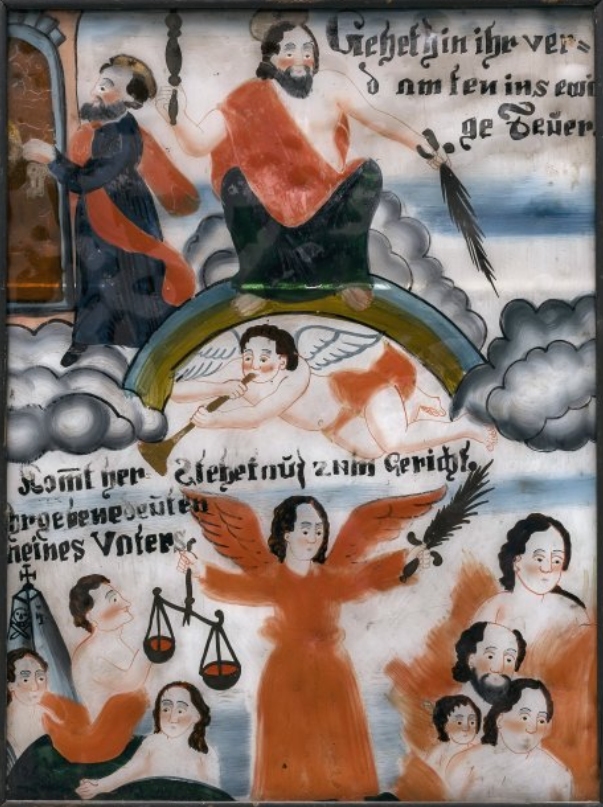 Gehet hin ihr ver=
damten ins ewi
ge Feüer.
Komt her
Stehet aüf zum Gericht.
meines Vaters